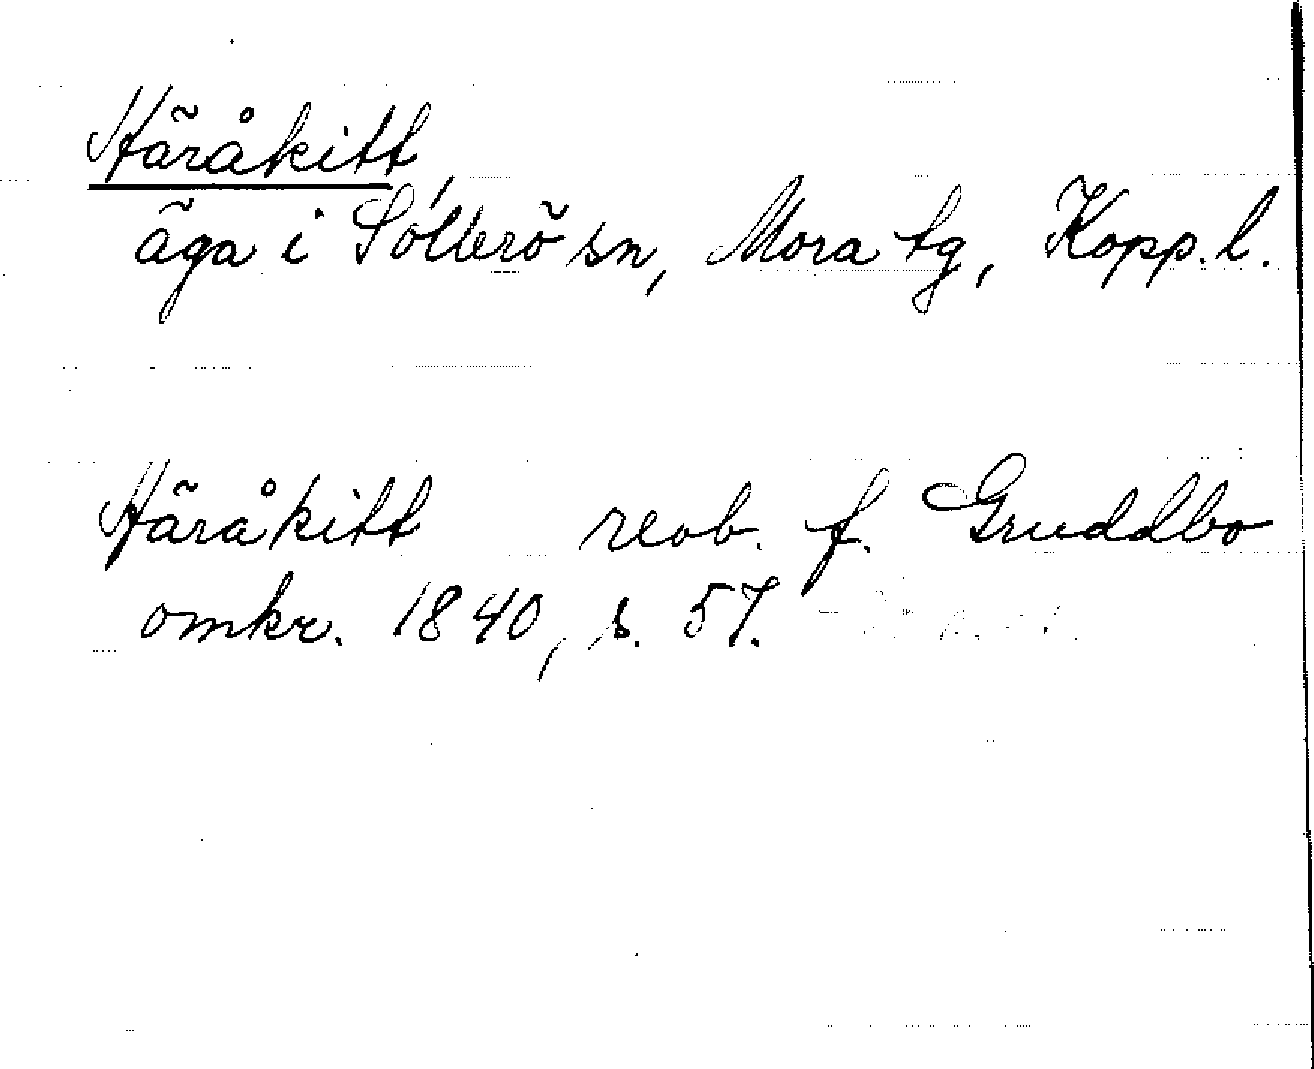 Häråkitt
äga i Sollerö sn, Mora tg, Kopp. l.
Häråkitt reob. f. Gruddbo
omkr. 1840, s. 57.